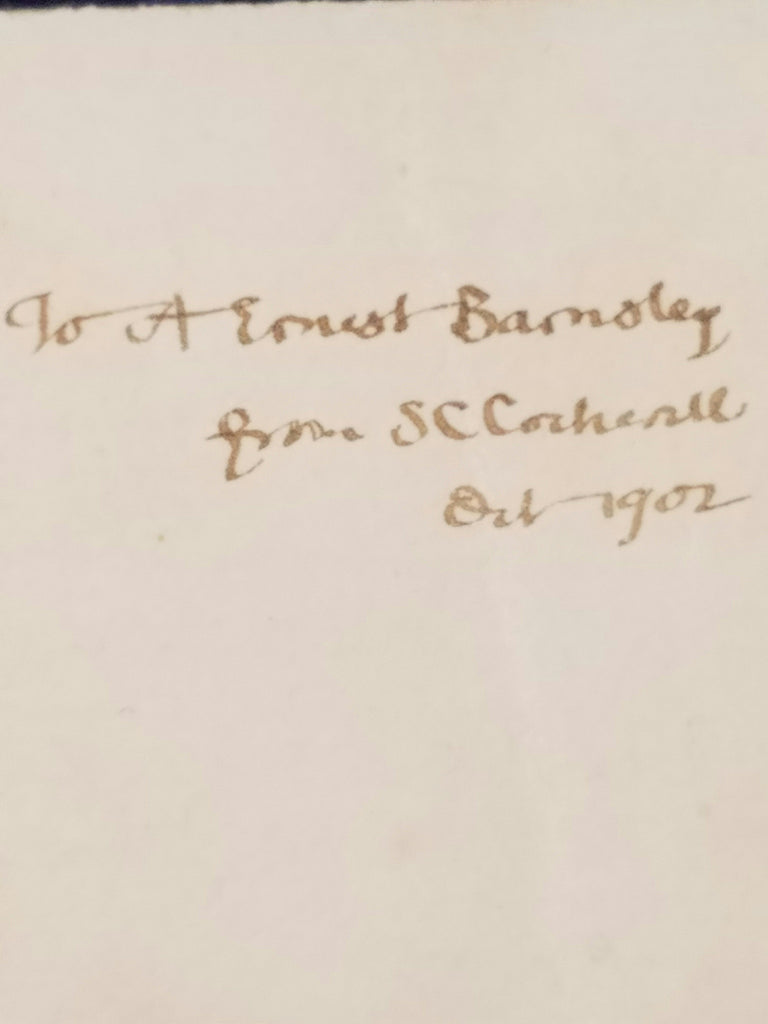 To A Ernest Barnsley
from S C Cockerell
Oct 1902